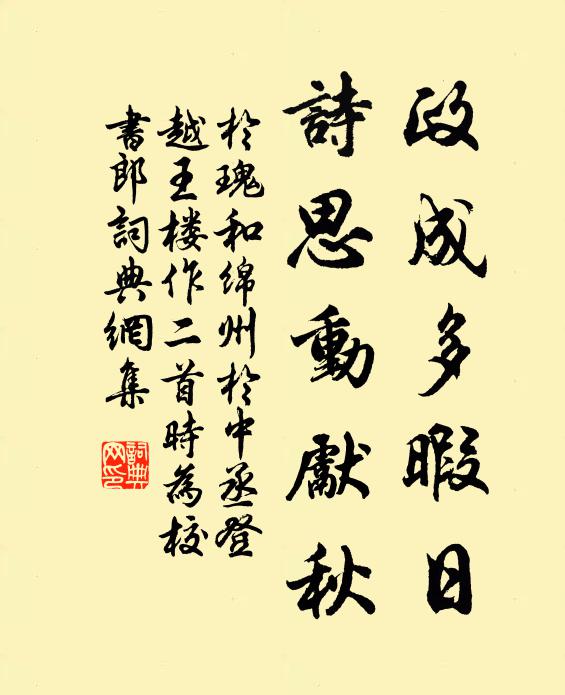 政成多暇日
詩思動獻秋
於瑰和绵州於中丞登
越王楼作二首時為校
書郎詞典網集
詞典网印